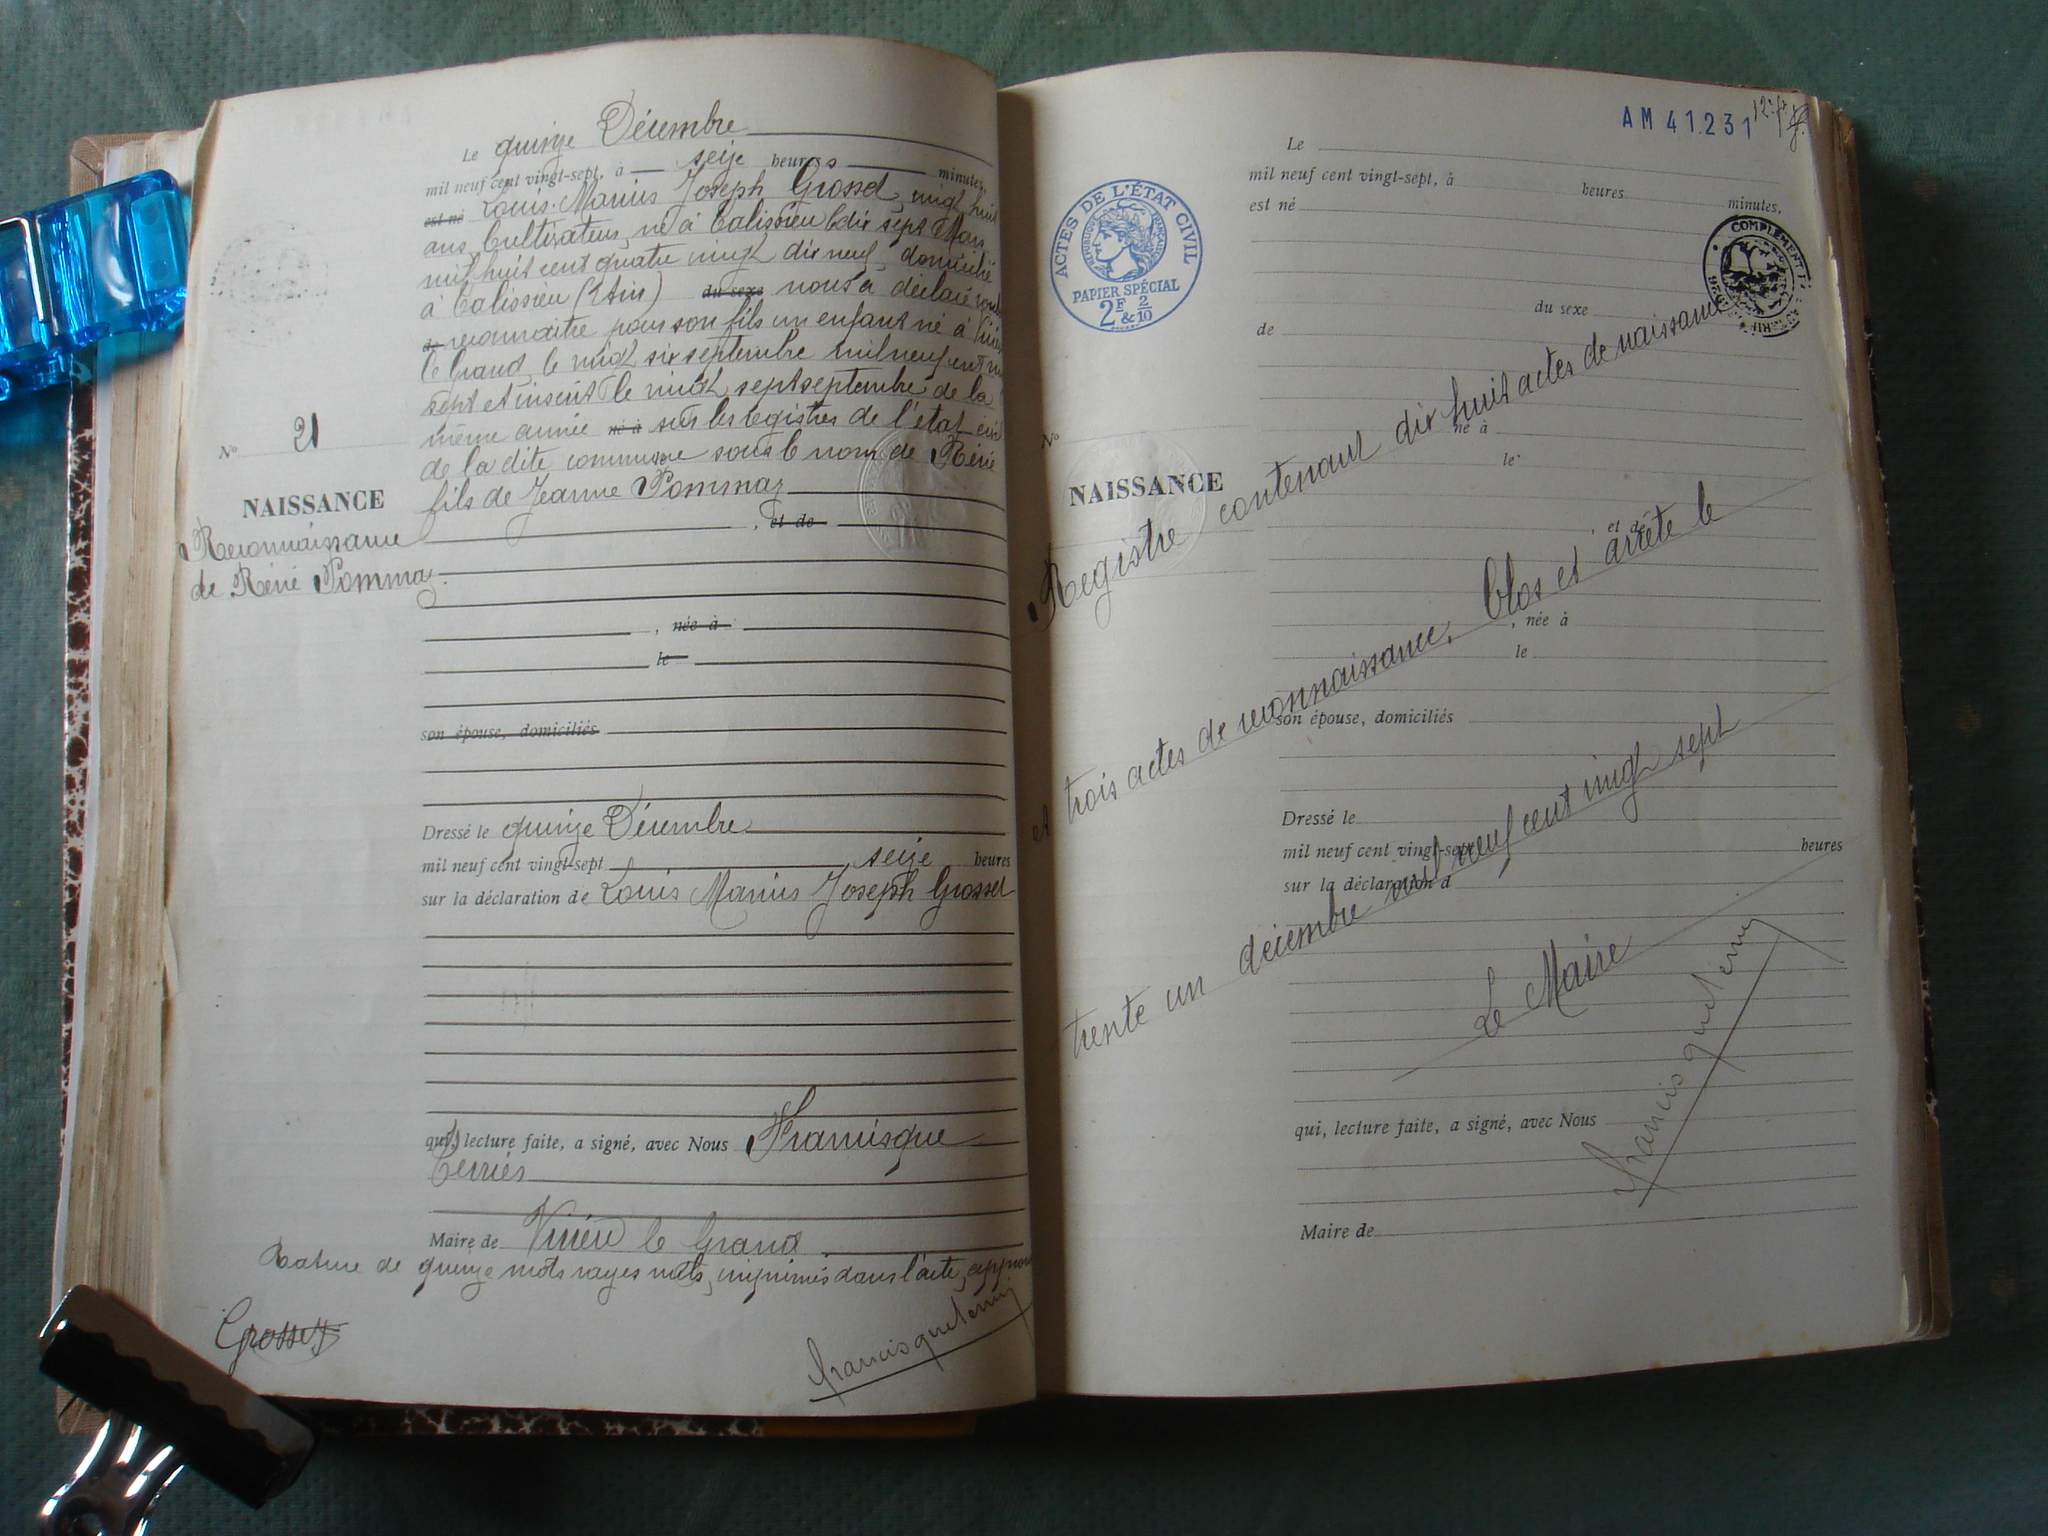 Le quinze Décembre
mil neuf cent vingt-sept, à seize heures minutes,
est né Louis Marius Joseph Grosset, vingt huit
ans, Cultivateur, né à Talissieu le dix sept Mars
mil huit cent quatre vingt dix neuf, domicilié
à Talissieu (Ain) du sexe nous a déclaré
de reconnaitre pour son fils un enfant né à Virieu
le Grand, le vingt six septembre mil neuf cent
sept et inscrit le vingt sept septembre de la
même année né à sur les registres de l'état civil
de la dite commune sous le nom de Réné
fils de Jeanne Pommaz
, et de
N° 21
NAISSANCE
Reconnaissance
de Réné Pommaz.
, née à
le
son épouse, domiciliés
Dressé le quinze Décembre
mil neuf cent vingt-sept, seize heures
sur la déclaration de Louis Marius Joseph Grosset
qui, lecture faite, a signé, avec Nous Francisque
Maire de Virieu le Grand
Rature de quinze mots rayés nuls, imprimés dans l'acte,
Grosset
AM 41.231
ACTES DE L'ÉTAT CIVIL
RÉPUBLIQUE FRANÇAISE
PAPIER SPÉCIAL
2F & 2/10
COMPLÉMENT
Le
mil neuf cent vingt-sept, à heures minutes,
est né
du sexe
de
né à
le
N°
NAISSANCE
, et de
, née à
le
son épouse, domiciliés
Dressé le
mil neuf cent vingt-sept heures
sur la déclaration d
qui, lecture faite, a signé, avec Nous
Maire de
Registre contenant dix huit actes de naissance
et trois actes de reconnaissance, Clos et arrêté le
trente un décembre mil neuf cent vingt sept
Le Maire